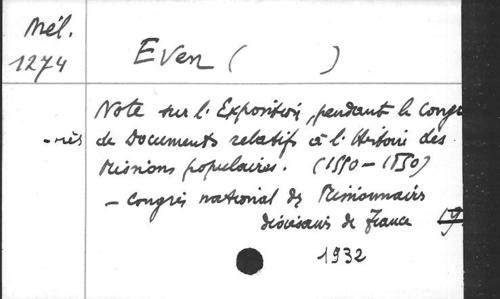 Mél.
1274
Even ( )
Note sur l'Exposition, pendant le Congr
-rès de Documents relatifs à l'Histoire des
Missions populaires. (1550-1850)
- Congrès national des Missionnaires
diocésains de France 19
1932